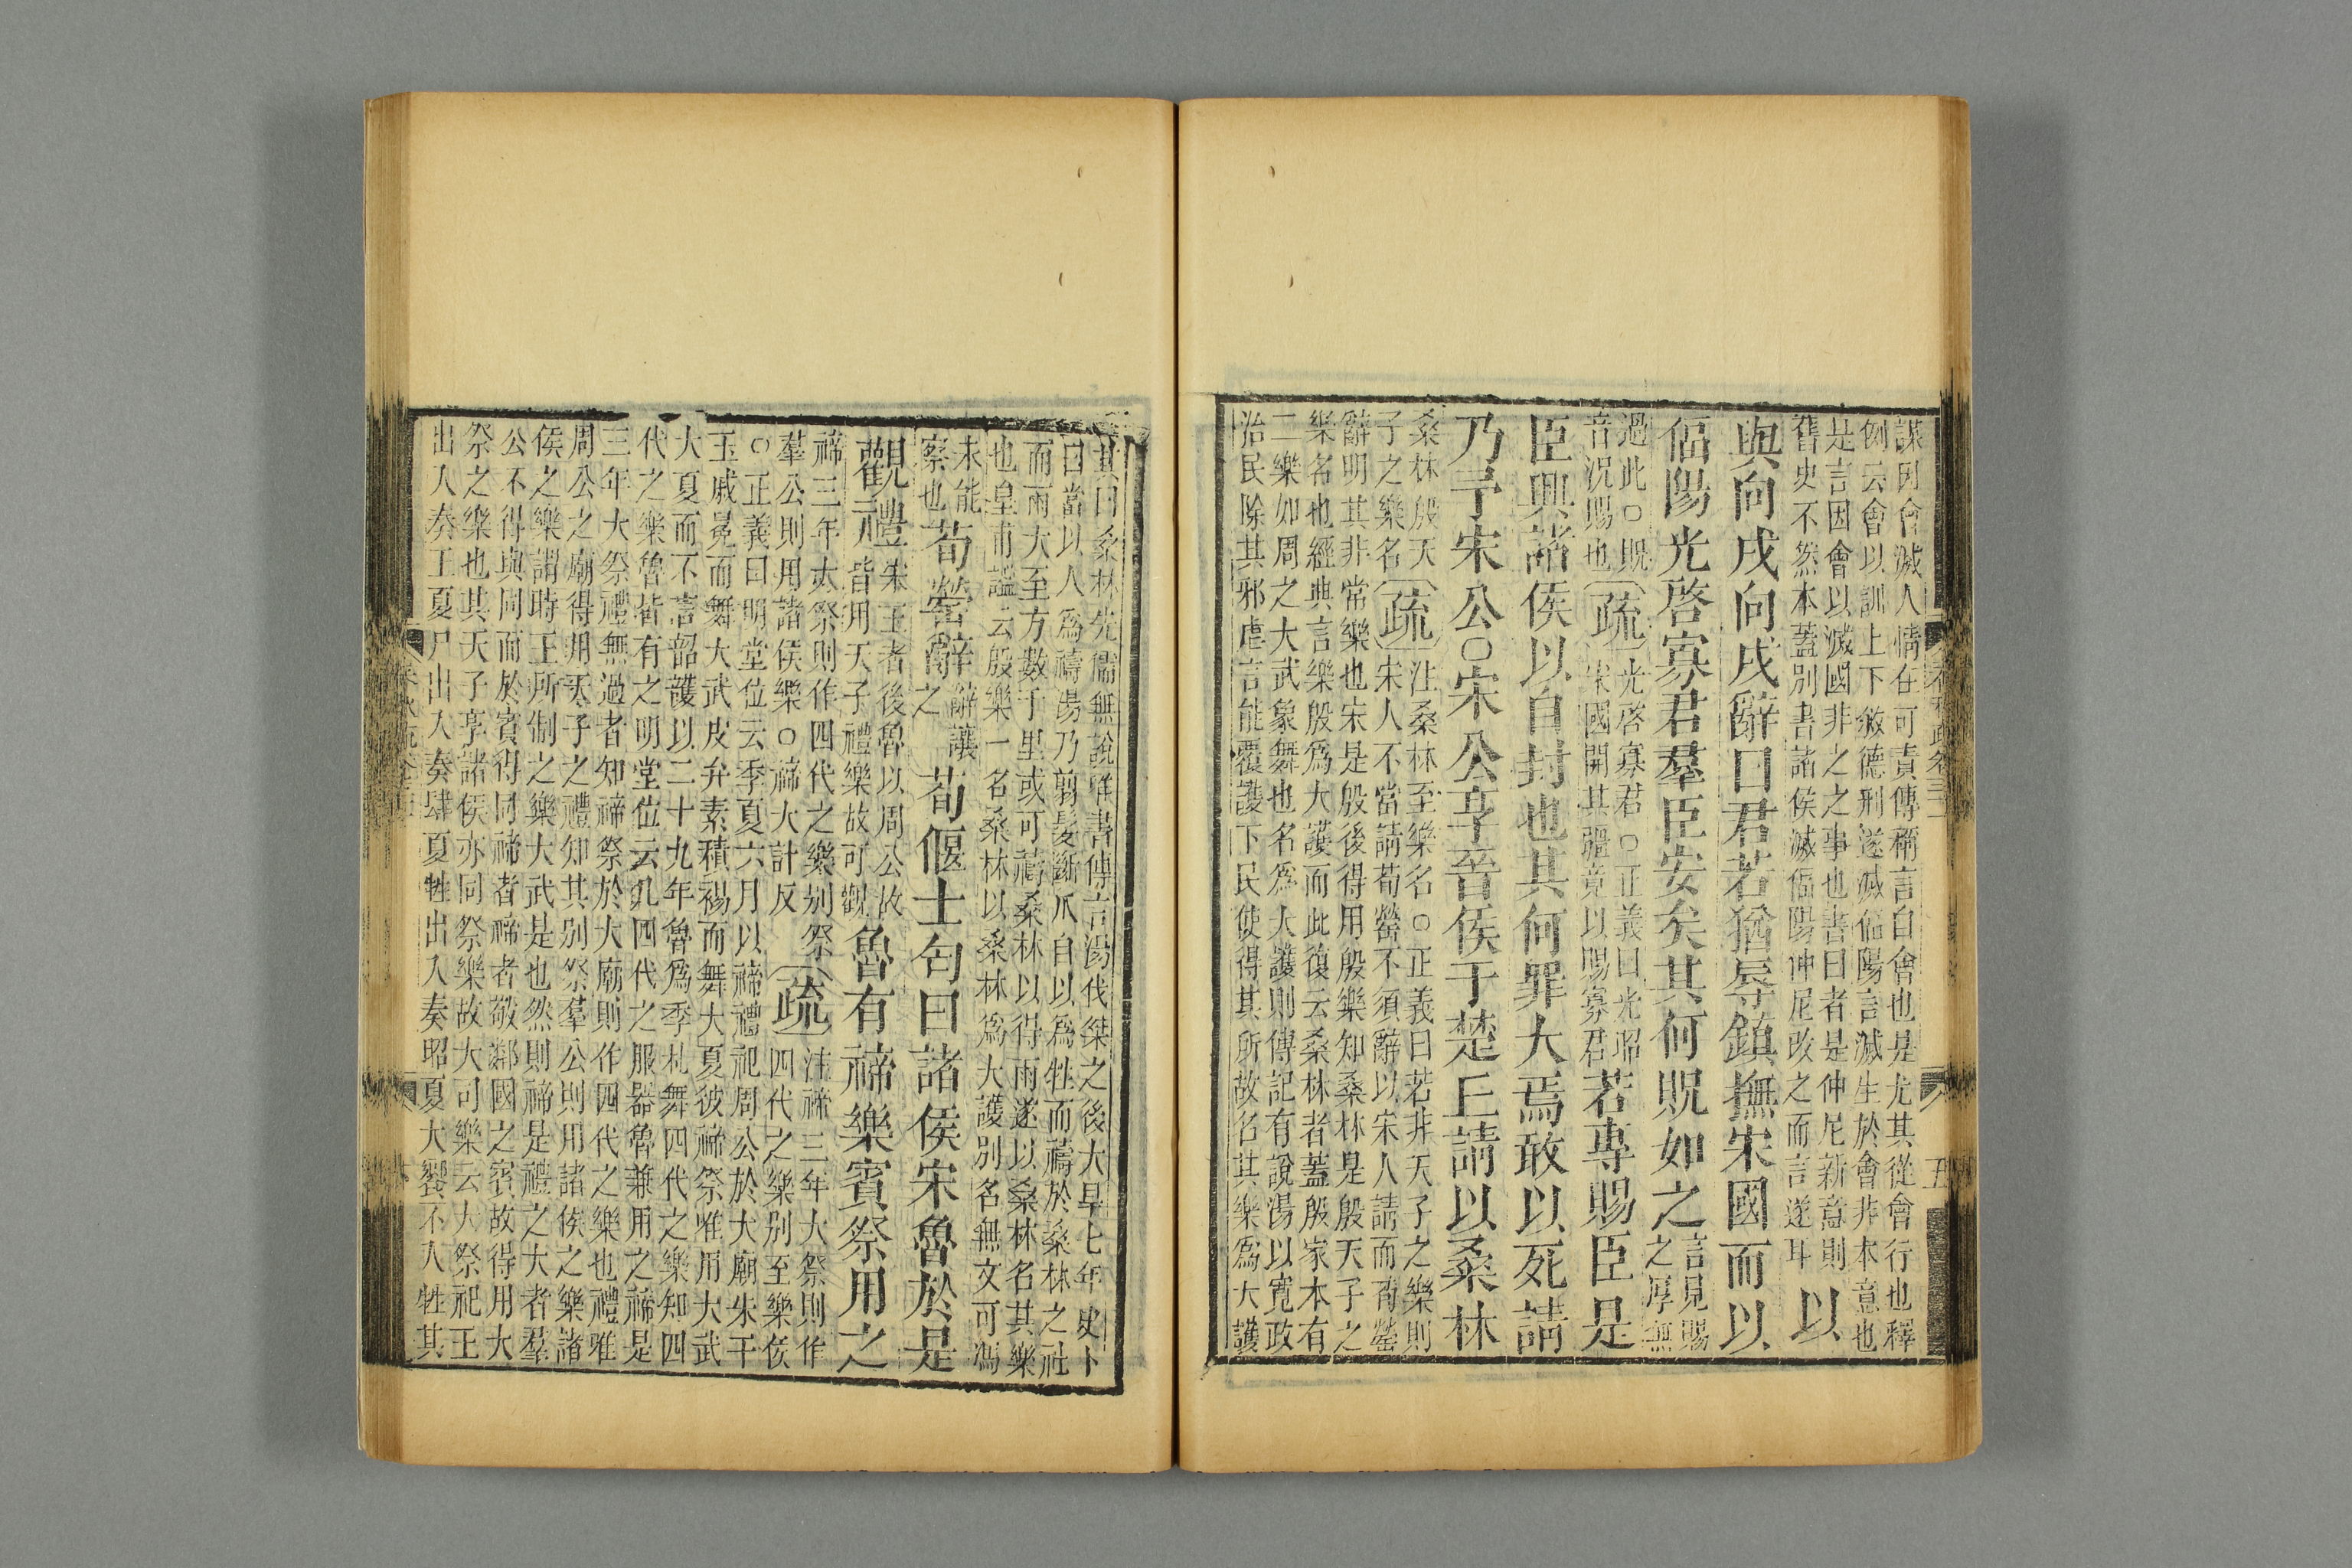 謀因會滅人情在可責傳稱言自會也是尤其從會行也釋
例云會以訓上下敘德刑遂滅偪陽言滅生於會非本意也
是言因會以滅國非之之事也書曰者是仲尼新意則
舊史不然本蓋別書諸侯滅偪陽仲尼改之而言遂耳
以
與向戌向戌辭曰君若猶辱鎮撫宋國而以
偪陽光啓寡君羣臣安矣其何貺如之
言見賜
之厚無
過此○貺
音況賜也
疏
光啓寡君○正義曰光昭
宋國開其疆竟以賜寡君
若專賜臣是
臣興諸侯以自封也其何罪大焉敢以死請
乃予宋公○宋公享晉侯于楚丘請以桑林
桑林殷天
子之樂名
疏
注桑林至樂名○正義曰若非天子之樂則
宋人不當請荀罃不須辭以宋人請而荀罃
辭明其非常樂也宋是殷後得用殷樂知桑林是殷天子之
樂名也經典言樂殷爲大護而此復云桑林者蓋殷家本有
二樂如周之大武象舞也名爲大護則傳記有說湯以寬政
治民除其邪虐言能覆護下民使得其所故名其樂爲大護
其曰桑林先儒無說唯書傳言湯伐桀之後大旱七年史卜
曰當以人爲禱湯乃翦髮斷爪自以爲牲而禱於桑林之社
而雨大至方數千里或可禱桑林以得雨遂以桑林名其樂
也皇甫謐云殷樂一名桑林以桑林爲大護別名無文可馮
未能
察也
荀罃辭
辭讓
之
荀偃士匄曰諸侯宋魯於是
觀禮
宋王者後魯以周公故
皆用天子禮樂故可觀
魯有禘樂賓祭用之
禘三年大祭則作四代之樂別祭
羣公則用諸侯樂○禘大計反
疏
注禘三年大祭則作
四代之樂別至樂侯
○正義曰明堂位云季夏六月以禘禮祀周公於大廟朱干
玉戚冕而舞大武皮弁素積裼而舞大夏彼禘祭唯用大武
大夏而不言韶護以二十九年魯爲季札舞四代之樂知四
代之樂魯皆有之明堂位云凡四代之服器魯兼用之禘是
三年大祭禮無過者知禘祭於大廟則作四代之樂也禮唯
周公之廟得用天子之禮知其別祭羣公則用諸侯之樂諸
侯之樂謂時王所制之樂大武是也然則禘是禮之大者羣
公不得與同而於賓得同禘者敬鄰國之賓故得用大
祭之樂也其天子享諸侯亦同祭樂故大司樂云大祭祀王
出入奏王夏尸出入奏肆夏牲出入奏昭夏大饗不入牲其